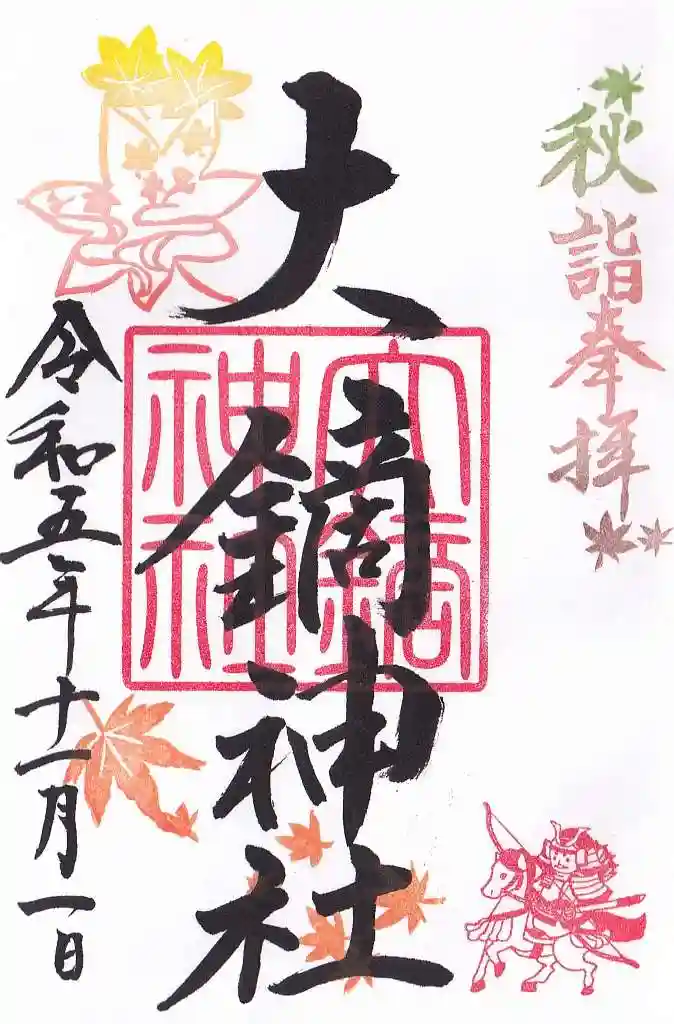 秋詣奉拝
大鏑神社
大鏑
神社
令和五年十一月一日